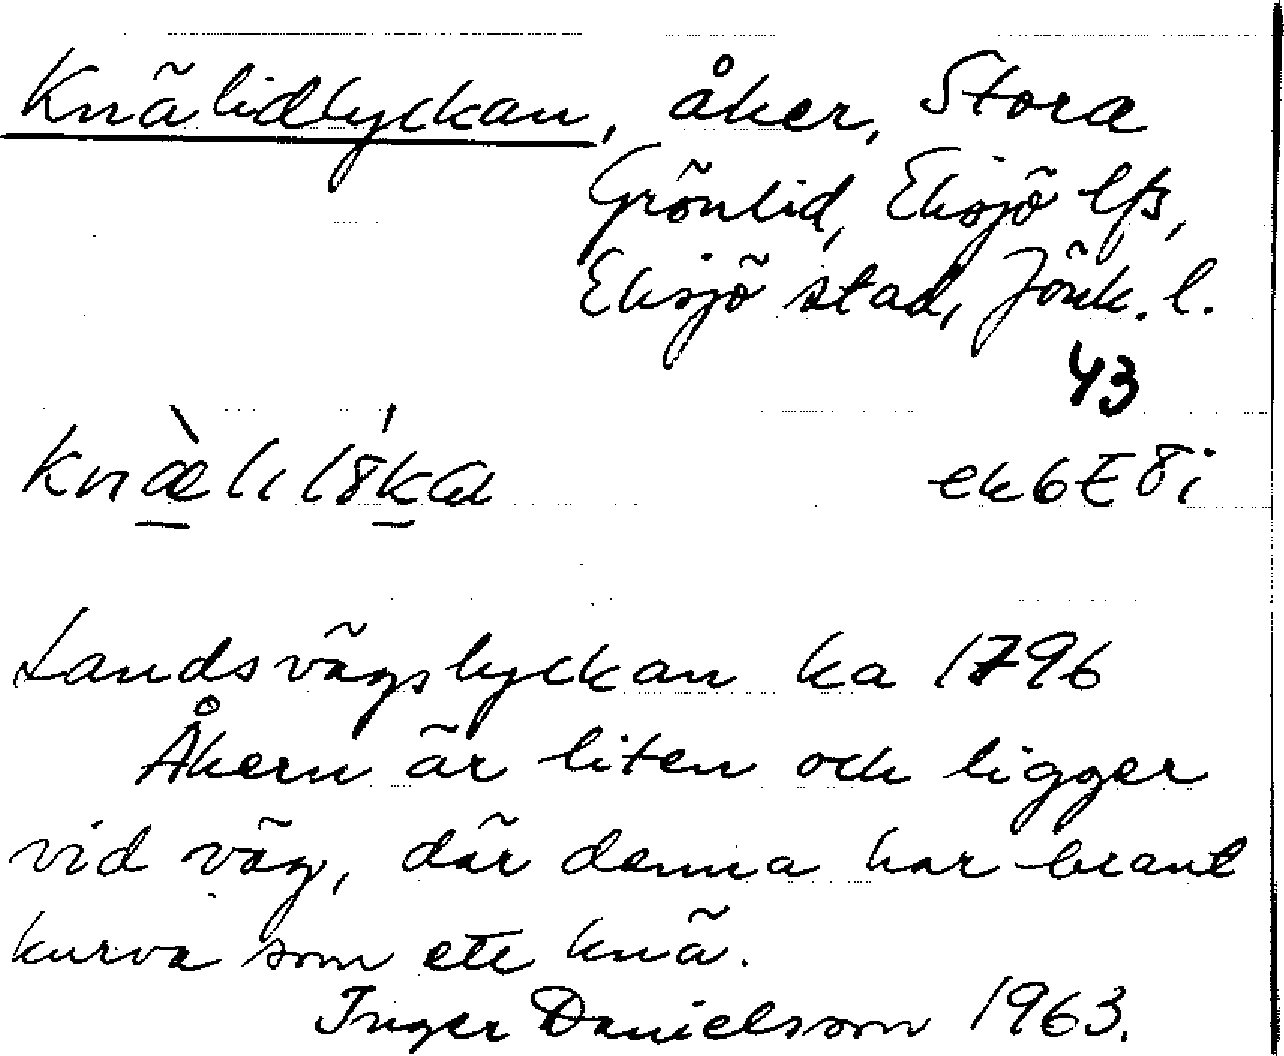 Knälidlyckan, åker, Stora
Grönlid, Eksjö lfs,
Eksjö stad, Jönk. l.
43
knæ̀lılýka ek6E8i
Landsvägslyckan ka 1796
Åkern är liten och ligger
vid väg, där denna har brant
kurva som ett knä.
Inger Danielsson 1963.